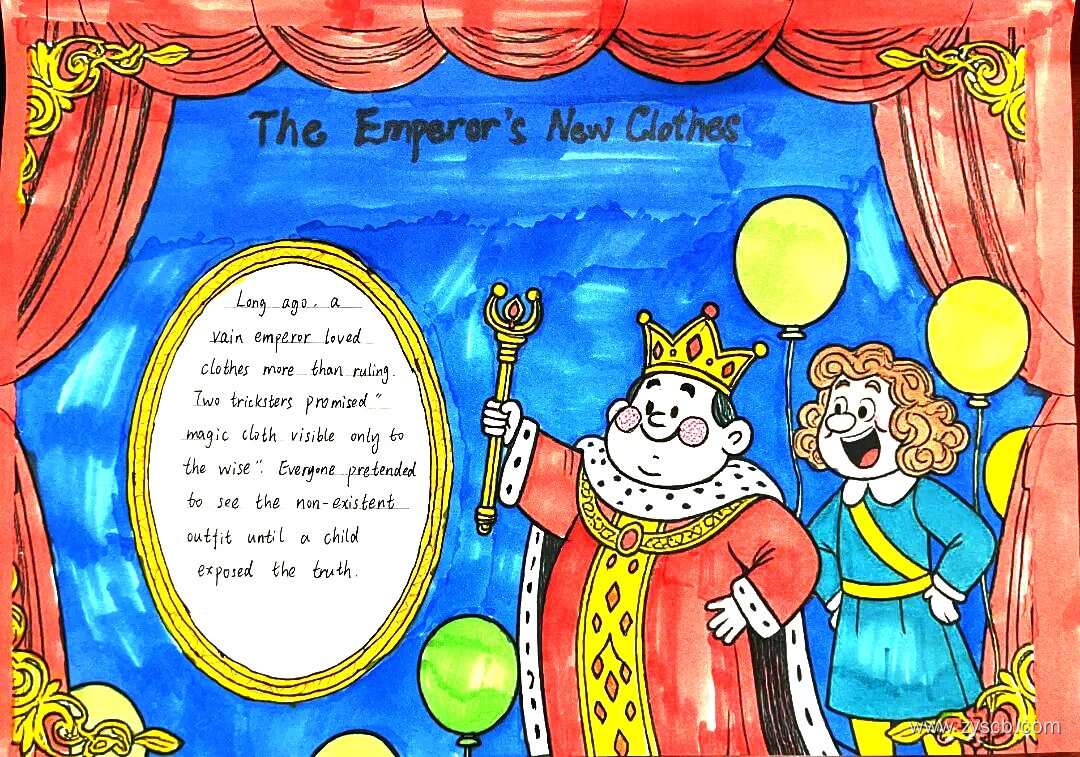 The Emperor's New Clothes
Long ago, a
vain emperor loved
clothes more than ruling.
Two tricksters promised "
magic cloth visible only to
the wise". Everyone pretended
to see the non-existent
outfit until a child
exposed the truth.
www.zyscb.com